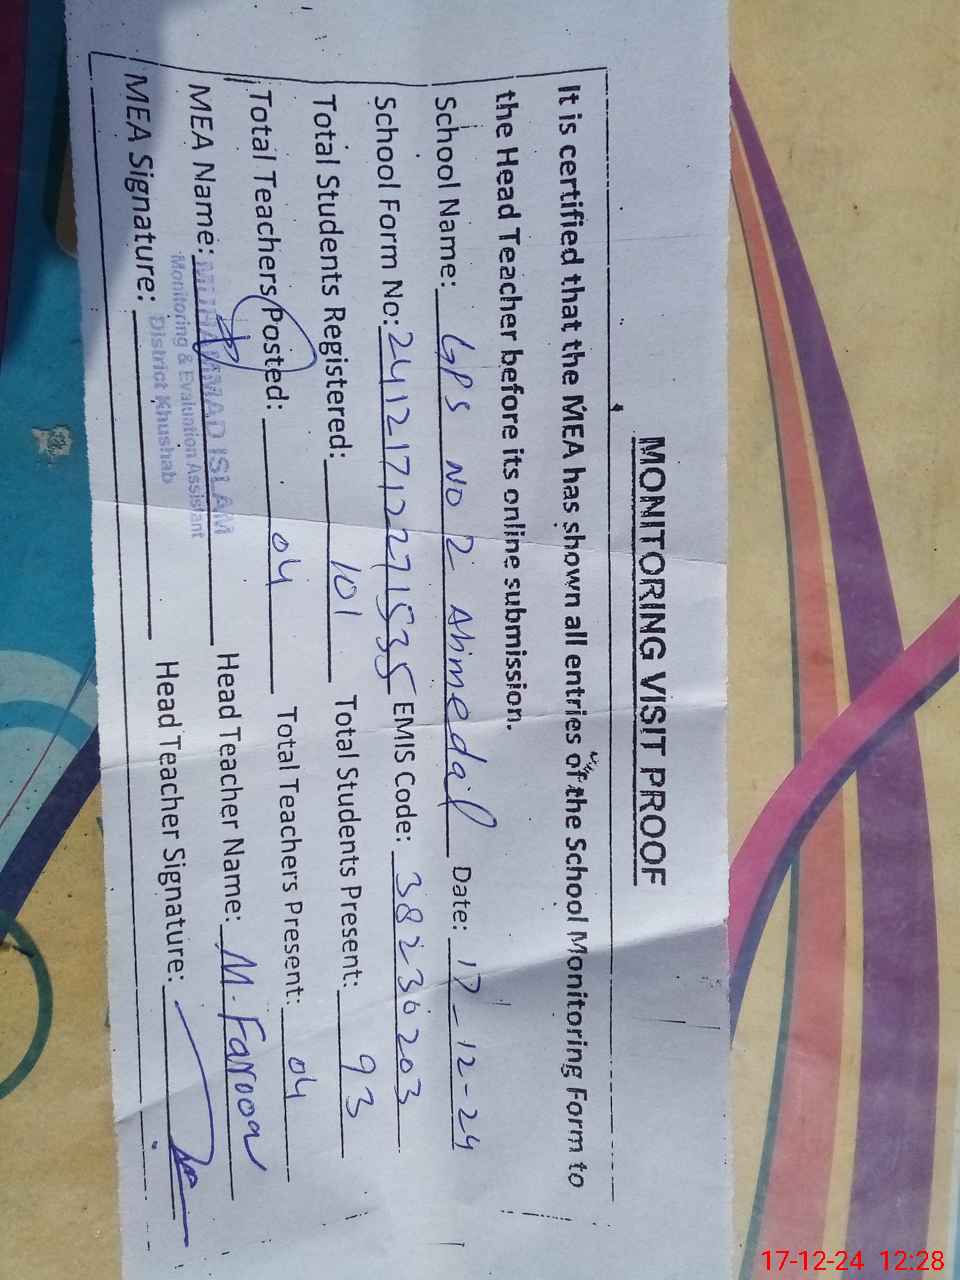 MONITORING VISIT PROOF
It is certified that the MEA has shown all entries of the School Monitoring Form to
the Head Teacher before its online submission.
School Name: GPS NO 2 Ahmedal Date: 17-12-24
School Form No: 24121712271535 EMIS Code: 38230203
Total Students Registered: 101 Total Students Present: 93
Total Teachers Posted: 04 Total Teachers Present: 04
MEA Name: MUHAMMAD ISLAM Head Teacher Name: M. Farooq
Monitoring & Evaluation Assistant
District Khushab
MEA Signature: Head Teacher Signature:
17-12-24 12:28